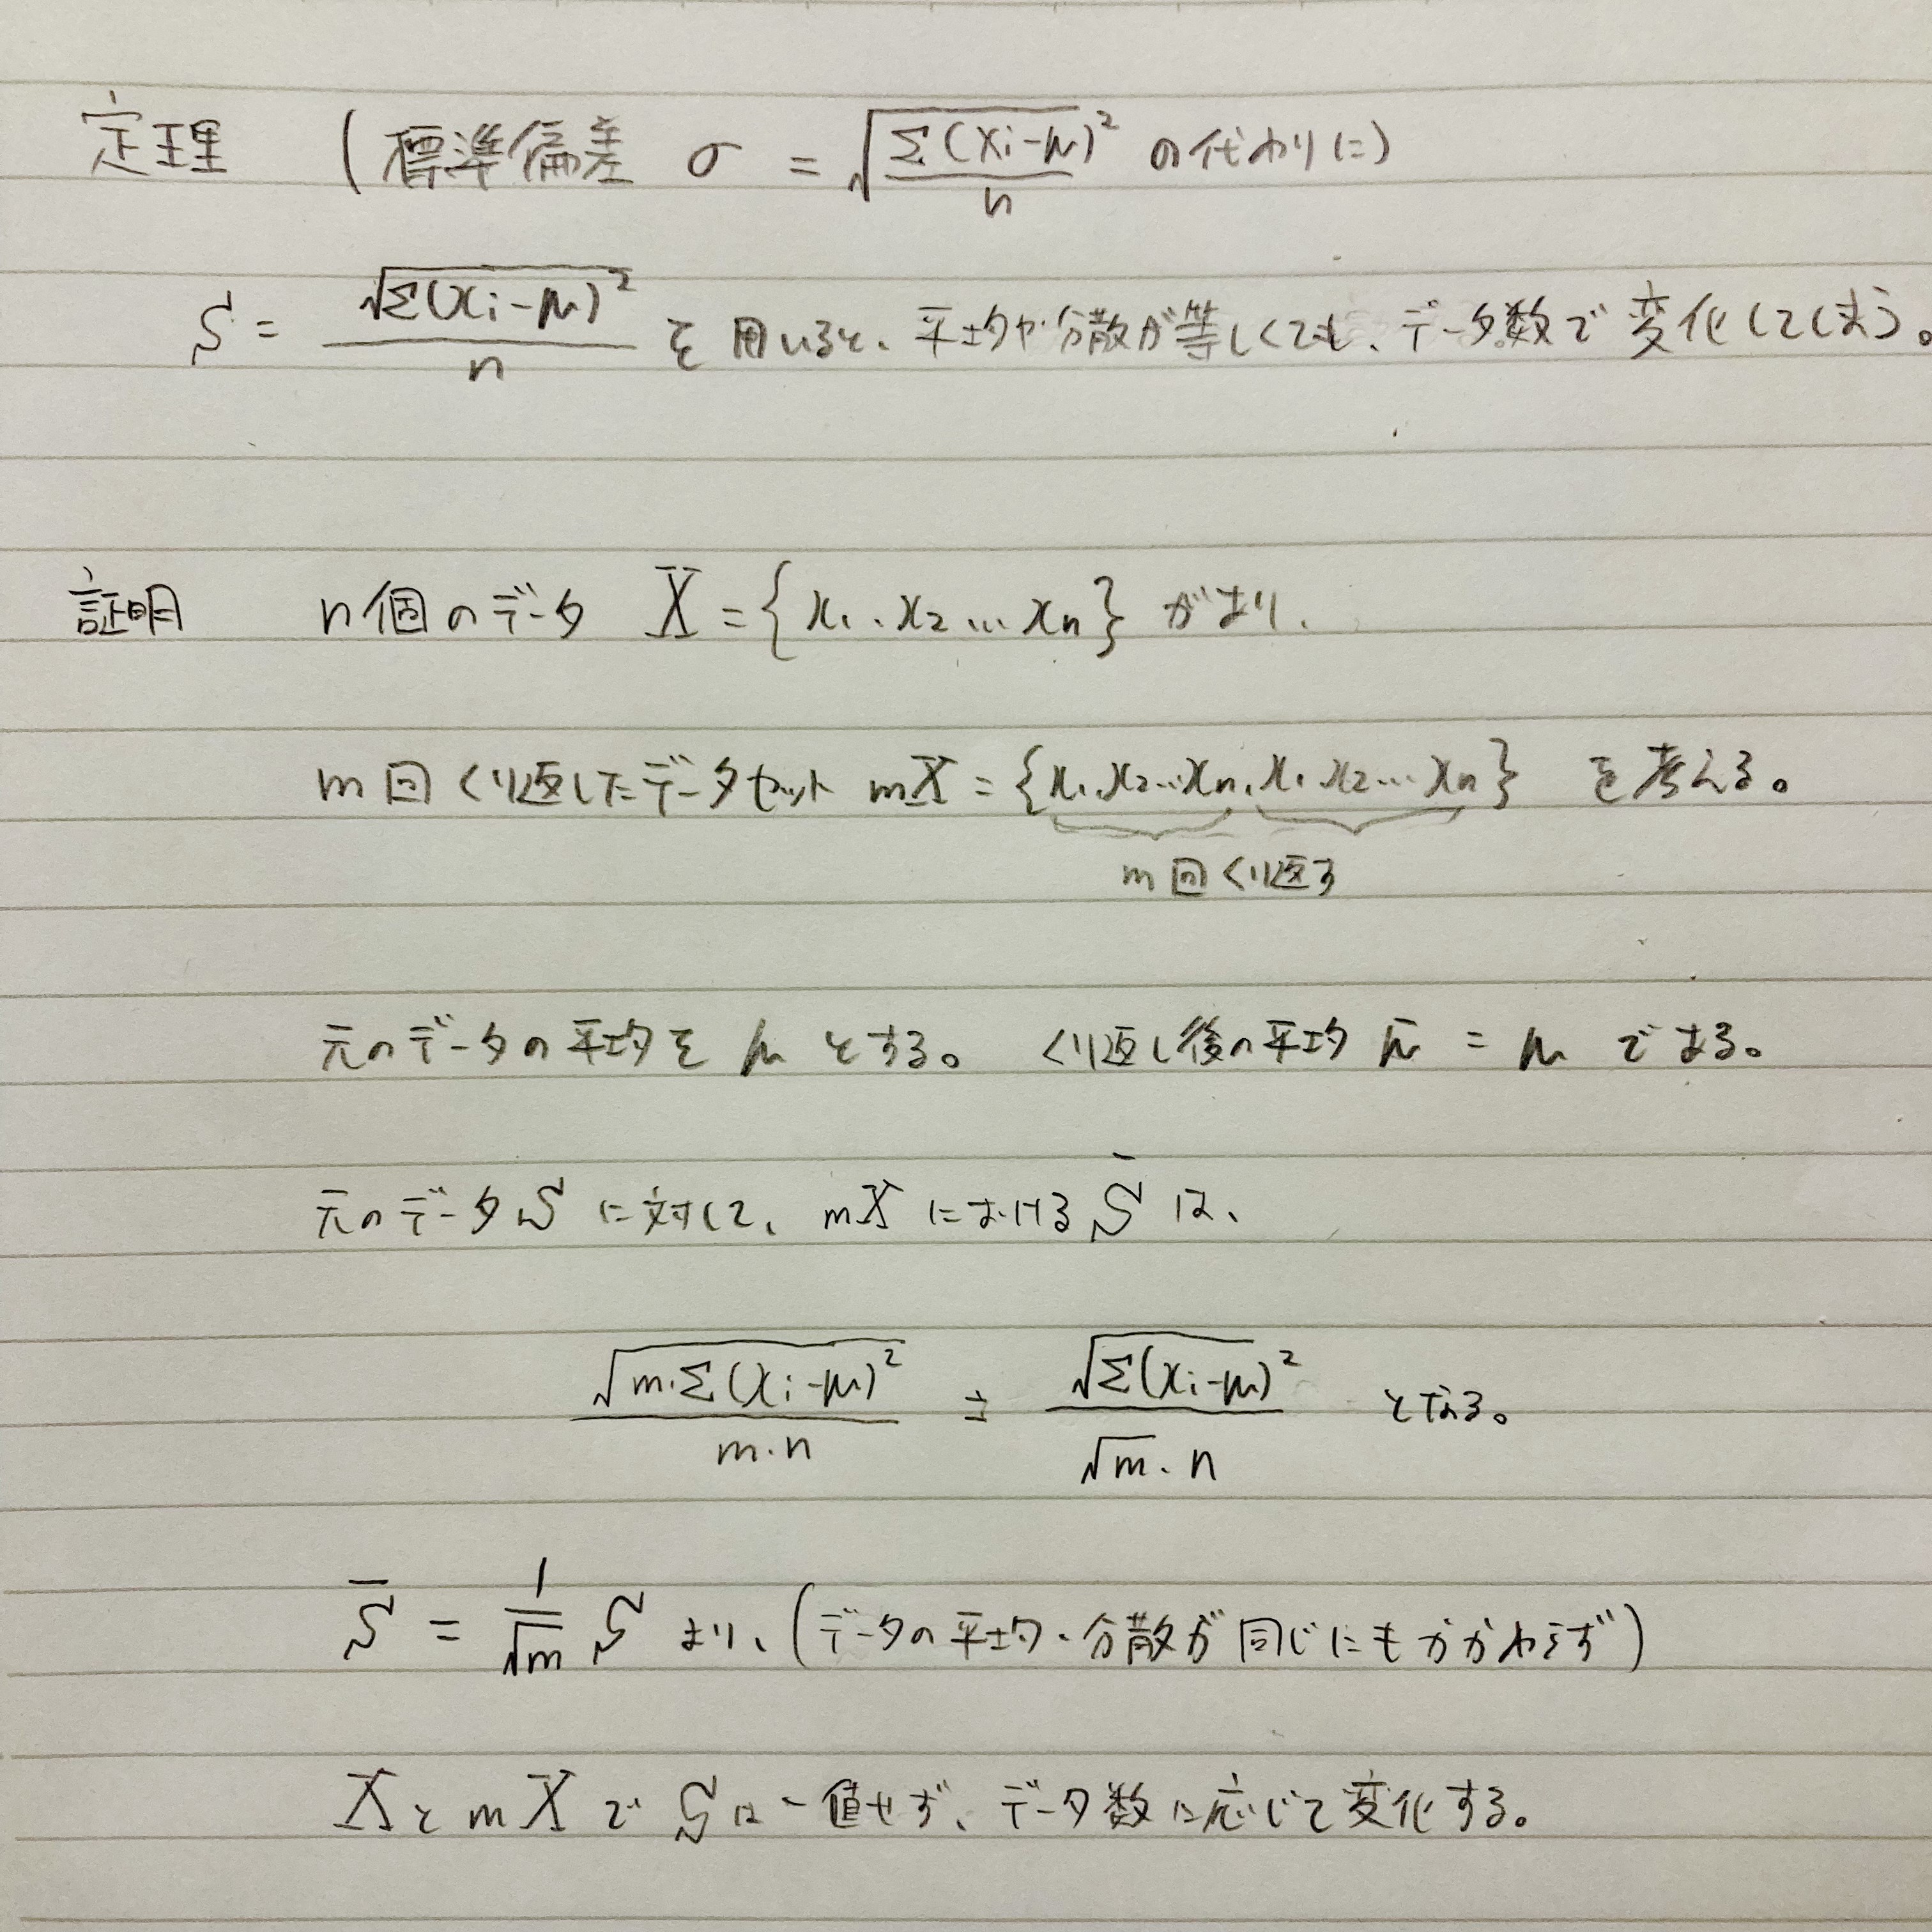 定理 (標準偏差 σ = √(Σ(xi-μ)²/n) の代わりに)
S = √Σ(xi-μ)² / n を用いると、平均や分散が等しくても、データ数で変化してしまう。
証明 n個のデータ X = {x₁、x₂…xn} があり、
m回くり返したデータセット mX = {x₁、x₂…xn、x₁、x₂…xn} を考える。
m回くり返す
元のデータの平均を μ とする。 くり返し後の平均 μ̄ = μ である。
元のデータS に対して、mX における S̄ は、
√m·Σ(xi-μ)² / m·n = √Σ(xi-μ)² / √m·n となる。
S̄ = 1/√m S より、(データの平均・分散が同じにもかかわらず)
XとmXでSは一値せず、データ数に応じて変化する。